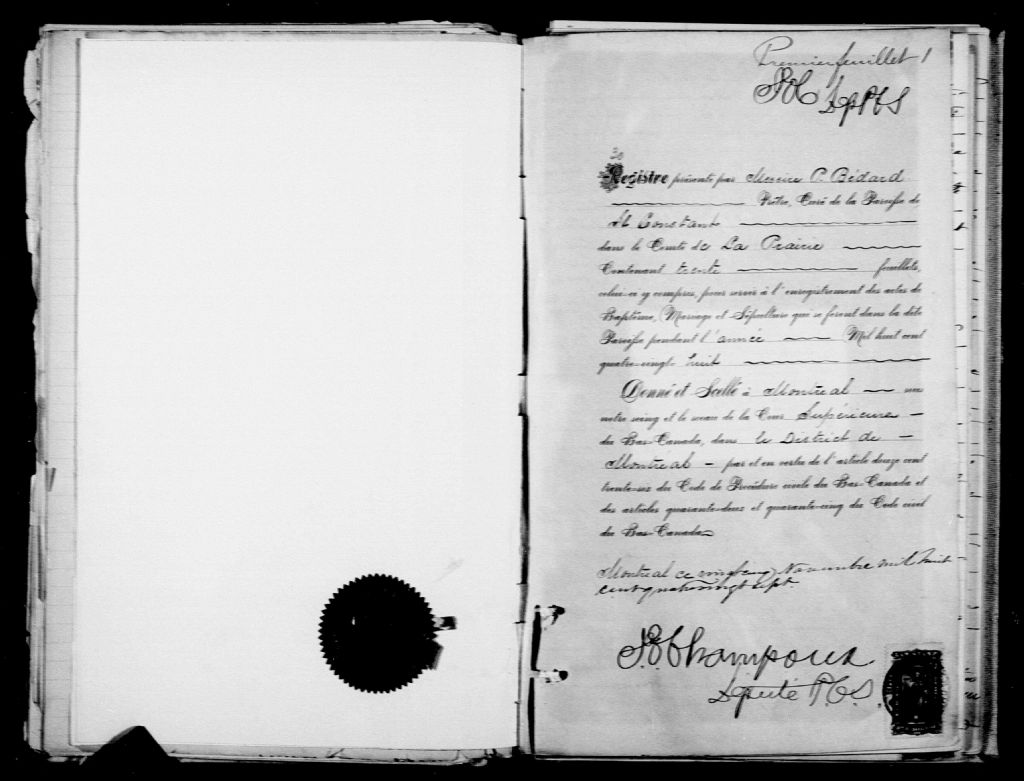 Premier feuillet 1
Dep PCS
30
Registre présenté par Messire P. Bédard
Prêtre, Curé de la Paroisse de
St Constant
dans le Comté de La Prairie
Contenant trente feuillets,
celui-ci y compris, pour servir à l'enregistrement des actes de
Baptême, Mariage et Sépulture qui se feront dans la dite
Paroisse pendant l'année Mil huit cent
quatre-vingt- huit
Donné et Scellé à Montreal sous
notre seing et le sceau de la Cour Supérieure
du Bas-Canada, dans le District de
Montreal par et en vertu de l'article douze cent
trente-six du Code de Procédure civile du Bas-Canada et
des articles quarante-deux et quarante-cinq du Code civil
du Bas-Canada
Montreal ce vingt cinq Novembre mil huit
cent quatre vingt sept.
Champoux
Député P.C.S.